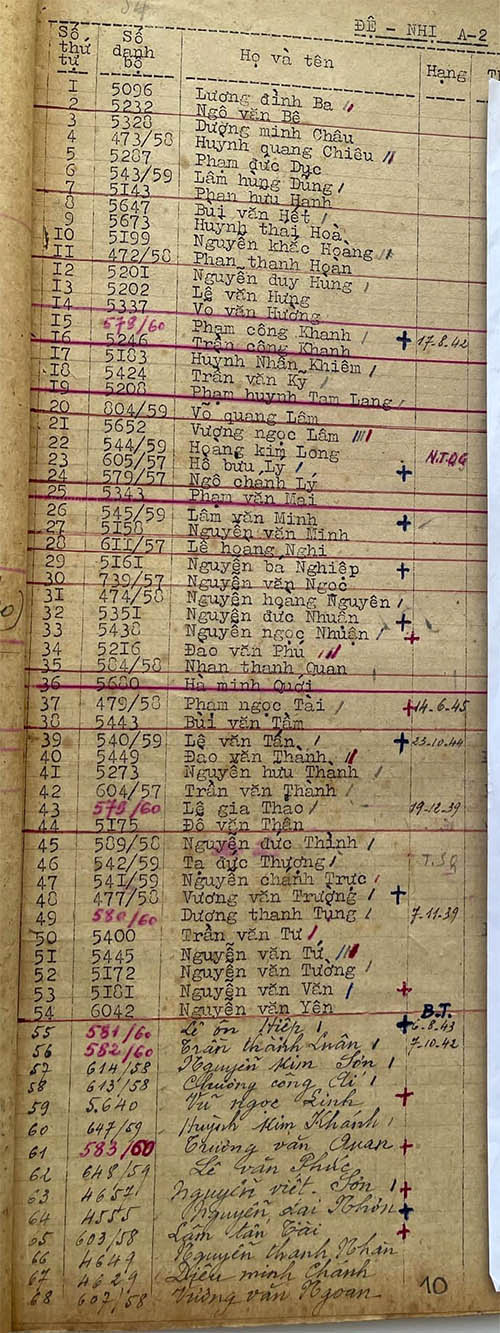 ĐỆ - NHỊ A-2
Số thứ tự Số danh bộ Họ và tên Hạng
1 5096 Lương đình Ba
2 5232 Ngô văn Bê
3 5328 Dương minh Châu
4 473/58 Huỳnh quang Chiêu
5 5287 Phạm đức Dục
6 543/59 Lâm hùng Dũng
7 5143 Phan hưu Hạnh
8 5647 Bùi văn Hết
9 5673 Huỳnh thai Hoà
10 5199 Nguyễn khắc Hoàng
11 472/58 Phan thanh Hoan
12 5201 Nguyễn duy Hung
13 5202 Lê văn Hưng
14 5337 Vo văn Hường
15 578/60 Phạm công Khanh
16 5246 Trần công Khanh + 17-8-42
17 5183 Huỳnh Nhẫn Khiêm
18 5424 Trần văn Kỹ
19 5208 Phạm huynh Tam Lang
20 804/59 Võ quang Lâm
21 5652 Vượng ngọc Lâm
22 544/59 Hoàng kim Long
23 605/57 Hồ bưu Lý N.T.ĐG
24 579/57 Ngô chánh Lý +
25 5343 Phạm văn Mai
26 545/59 Lâm văn Minh +
27 5158 Nguyễn văn Minh
28 611/57 Lê hoang Nghi
29 5161 Nguyễn bá Nghiệp +
30 739/57 Nguyễn văn Ngọc
31 474/58 Nguyễn hoàng Nguyên
32 5351 Nguyễn đức Nhuận +
33 5438 Nguyễn ngọc Nhuận +
34 5216 Đao văn Phú
35 584/58 Nhan thanh Quan
36 5680 Hà minh Quới
37 479/58 Phạm ngọc Tài + 14-6-45
38 5443 Bùi văn Tâm
39 540/59 Lê văn Tấn + 23-10-44
40 5449 Đao văn Thành
41 5273 Nguyễn hưu Thành
42 604/57 Trần văn Thành
43 579/60 Lê gia Thảo 19-12-39
44 5175 Đỗ văn Thân
45 589/58 Nguyễn đức Thịnh
46 542/59 Tạ đức Thượng T.SQ
47 541/59 Nguyễn chánh Trực
48 477/58 Vương văn Trượng +
49 580/60 Dương thanh Tụng 7-11-39
50 5400 Trần văn Tư
51 5445 Nguyễn văn Tứ
52 5172 Nguyễn văn Tường
53 5181 Nguyễn văn Văn +
54 6042 Nguyễn văn Yên B.T.
55 581/60 Lê ôn Hiệp + 6-8-43
56 582/60 Trần thành Luân 7-10-42
57 614/58 Nguyễn Kim Sơn
58 613/58 Chương công Ái
59 5.640 Vũ ngọc Linh +
60 647/59 Huỳnh Kim Khánh
61 583/60 Trương văn Quan +
62 648/59 Lê văn Phúc
63 4657 Nguyễn viết Sơn +
64 4555 Nguyễn đai Nhơn +
65 603/58 Lâm tấn Tài +
66 4649 Nguyễn thanh Nhàn
67 4629 Diệu minh Chánh
68 607/58 Vương văn Ngoan
10